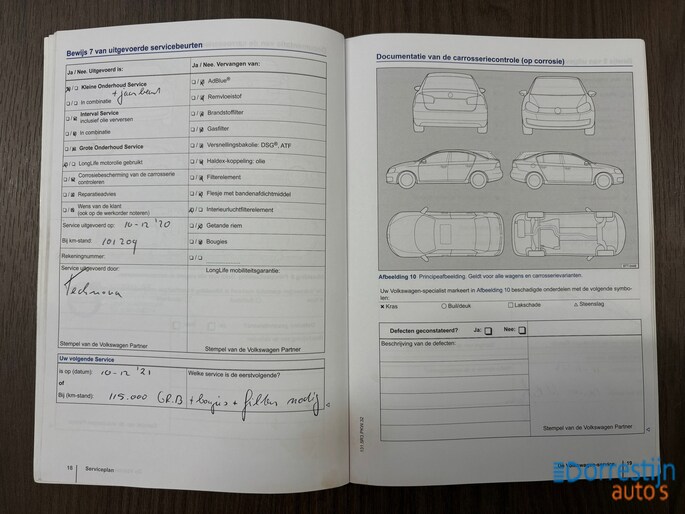 Bewijs 7 van uitgevoerde servicebeurten
Ja / Nee. Uitgevoerd is:
Kleine Onderhoud Service
In combinatie
Interval Service
inclusief olie verversen
In combinatie
Grote Onderhoud Service
LongLife motorolie gebruikt
Corrosiebescherming van de carrosserie
controleren
Reparatieadvies
Wens van de klant
(ook op de werkorder noteren)
Service uitgevoerd op: 10-12 '20
Bij km-stand: 101204
Rekeningnummer:
Service uitgevoerd door:
Technova
Stempel van de Volkswagen Partner
Ja / Nee. Vervangen van:
AdBlue®
Remvloeistof
Brandstoffilter
Gasfilter
Versnellingsbakolie: DSG®, ATF
Haldex-koppeling: olie
Filterelement
Flesje met bandenafdichtmiddel
Interieurluchtfilterelement
Getande riem
Bougies
LongLife mobiliteitsgarantie:
Stempel van de Volkswagen Partner
Uw volgende Service
is op (datum): 10-12 '21
of
Bij (km-stand): 115.000
Welke service is de eerstvolgende?
GR.B + bougies + filters nodig
18 Serviceplan
Documentatie van de carrosseriecontrole (op corrosie)
Afbeelding 10 Principeafbeelding. Geldt voor alle wagens en carrosserievarianten.
Uw Volkswagen-specialist markeert in Afbeelding 10 beschadigde onderdelen met de volgende symbo-
len:
× Kras ○ Buil/deuk □ Lakschade △ Steenslag
Defecten geconstateerd? Ja: Nee:
Beschrijving van de defecten:
Stempel van de Volkswagen Partner
19
Dorrestijn
auto's